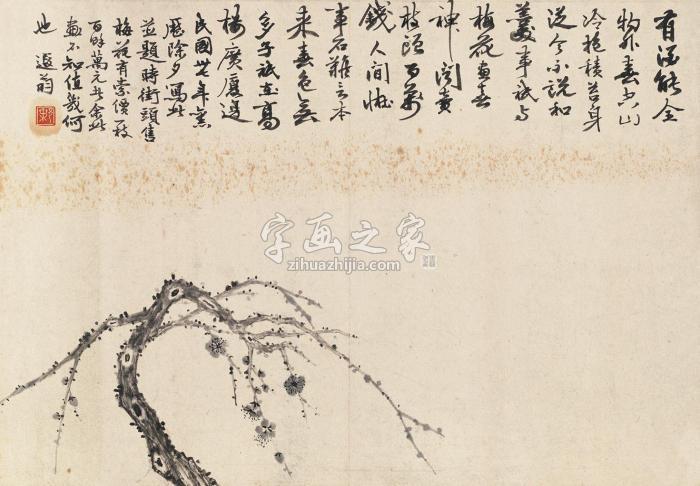 有酒能全
物外春空山
冷抱積苔身
從今不說和
羹事祇與
梅花畫春
神閒賣
枝頭百萬
錢人間
事石難言本
來春色無
多子祇在高
樓廣厦邊
民國年
歷除夕寫此
並題時街頭售
梅花有索價一枝
百餘萬元者余此
畫不知值幾何
也遐翁
字画之家
zihuazhijia.com